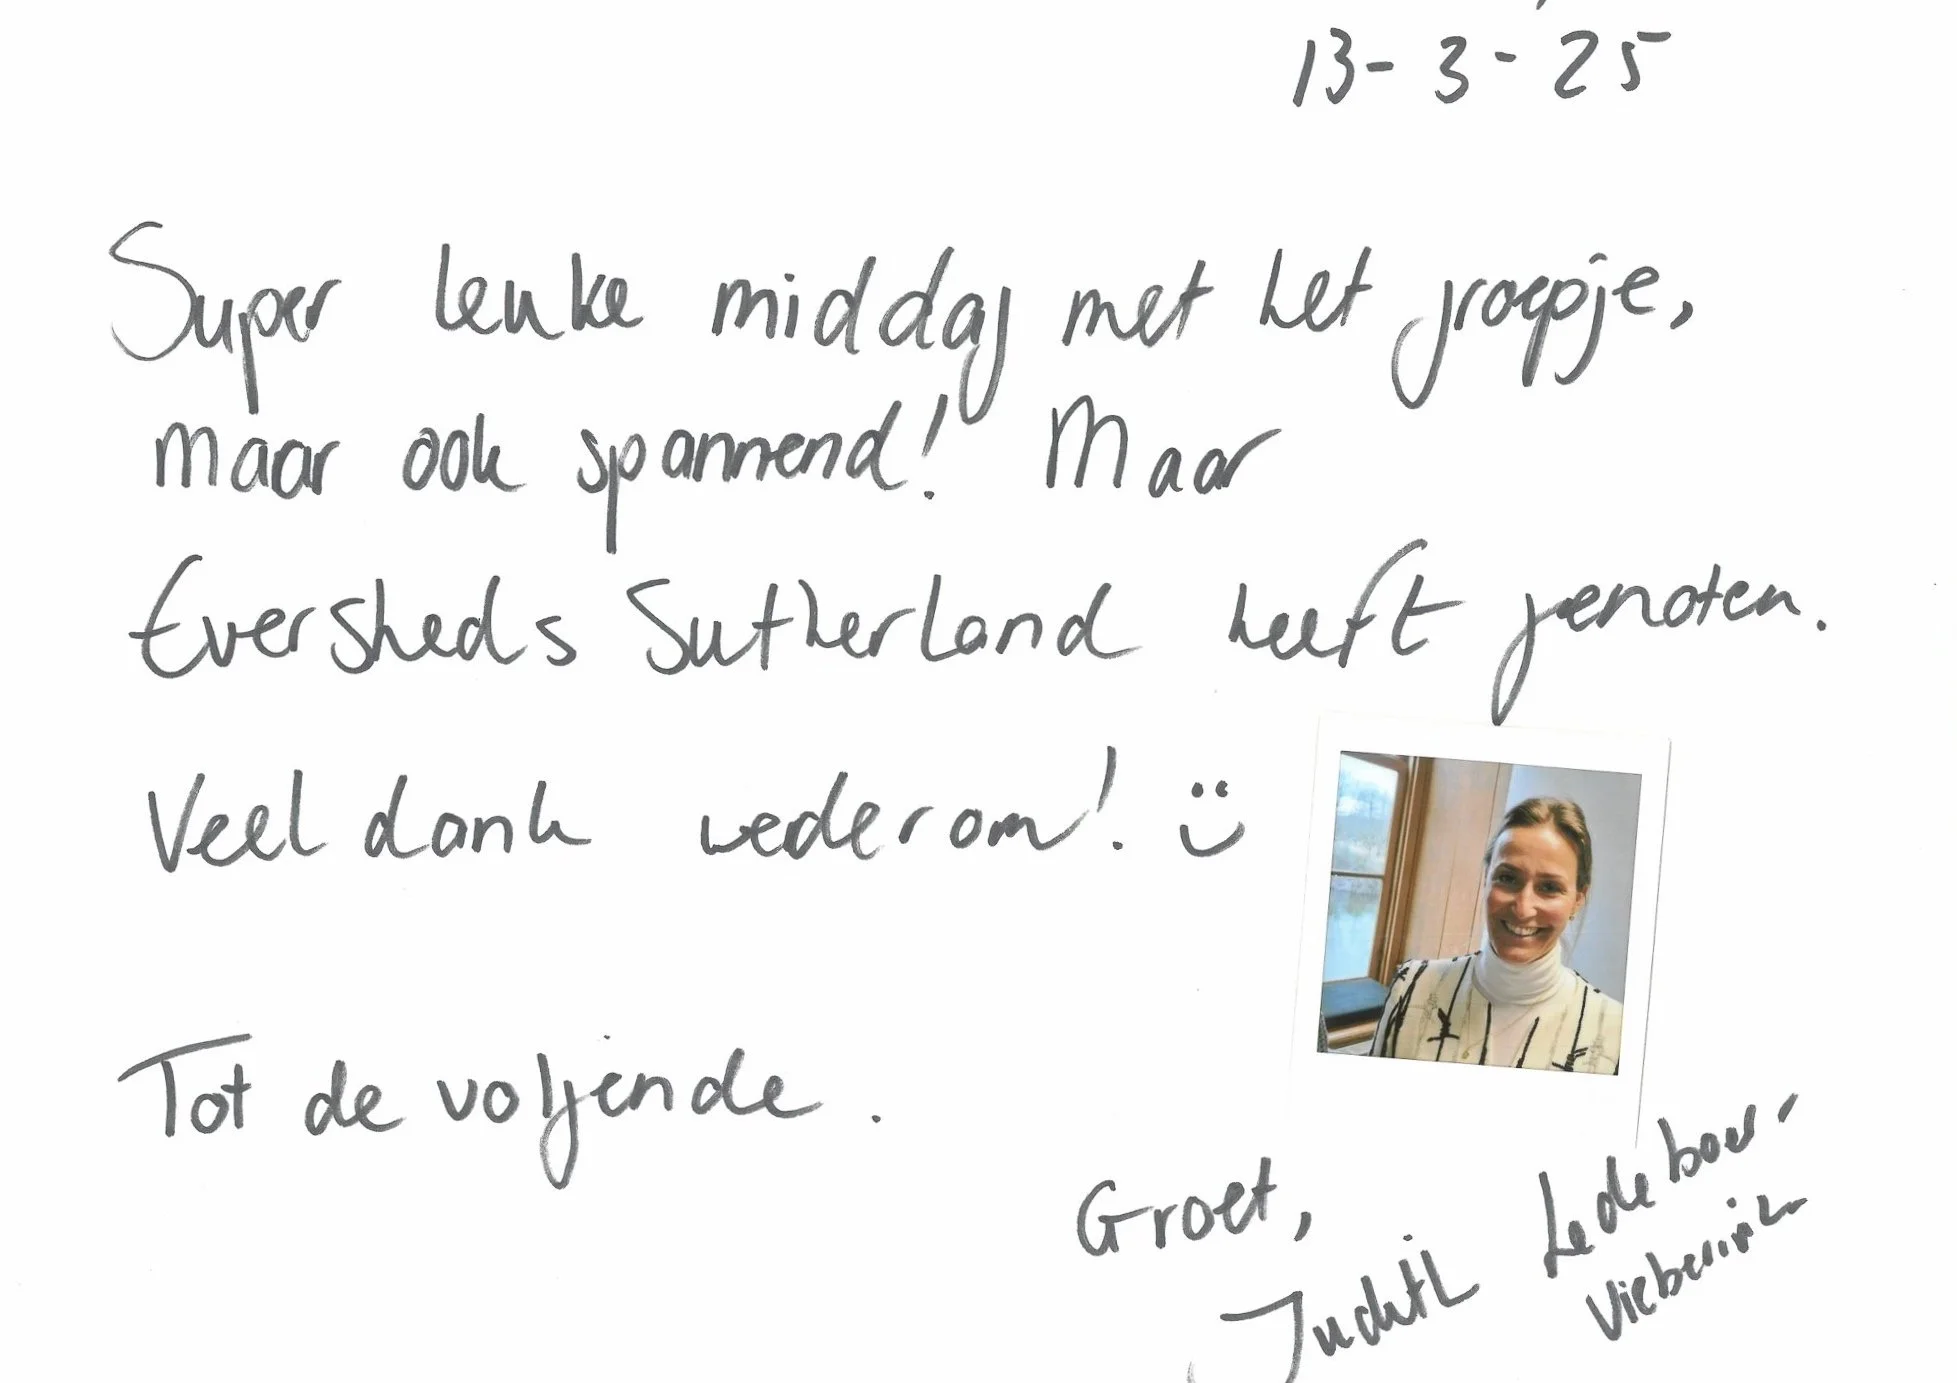 13-3-'25
Super leuke middag met het groepje,
maar ook spannend! Maar
Eversheds Sutherland heeft genoten.
Veel dank wederom! :)
Tot de volgende.
Groet,
Judith Ledeboer-